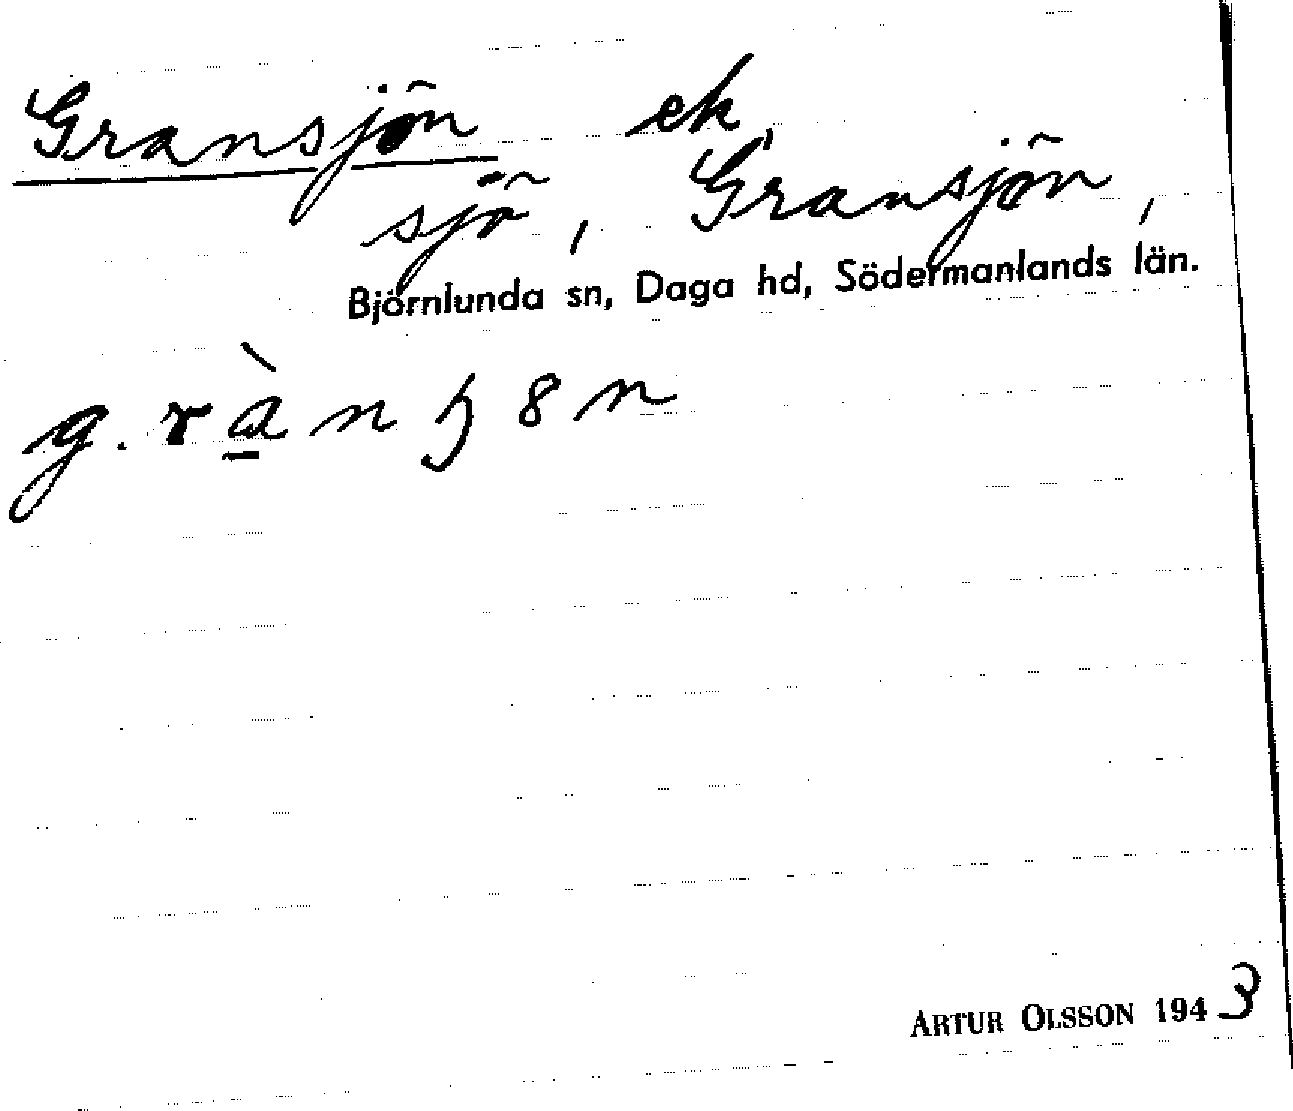 Gransjön ek,
sjö, Gransjön,
Björnlunda sn, Daga hd, Södermanlands län.
g. ràn ђ 8 n
ARTUR OLSSON 1943